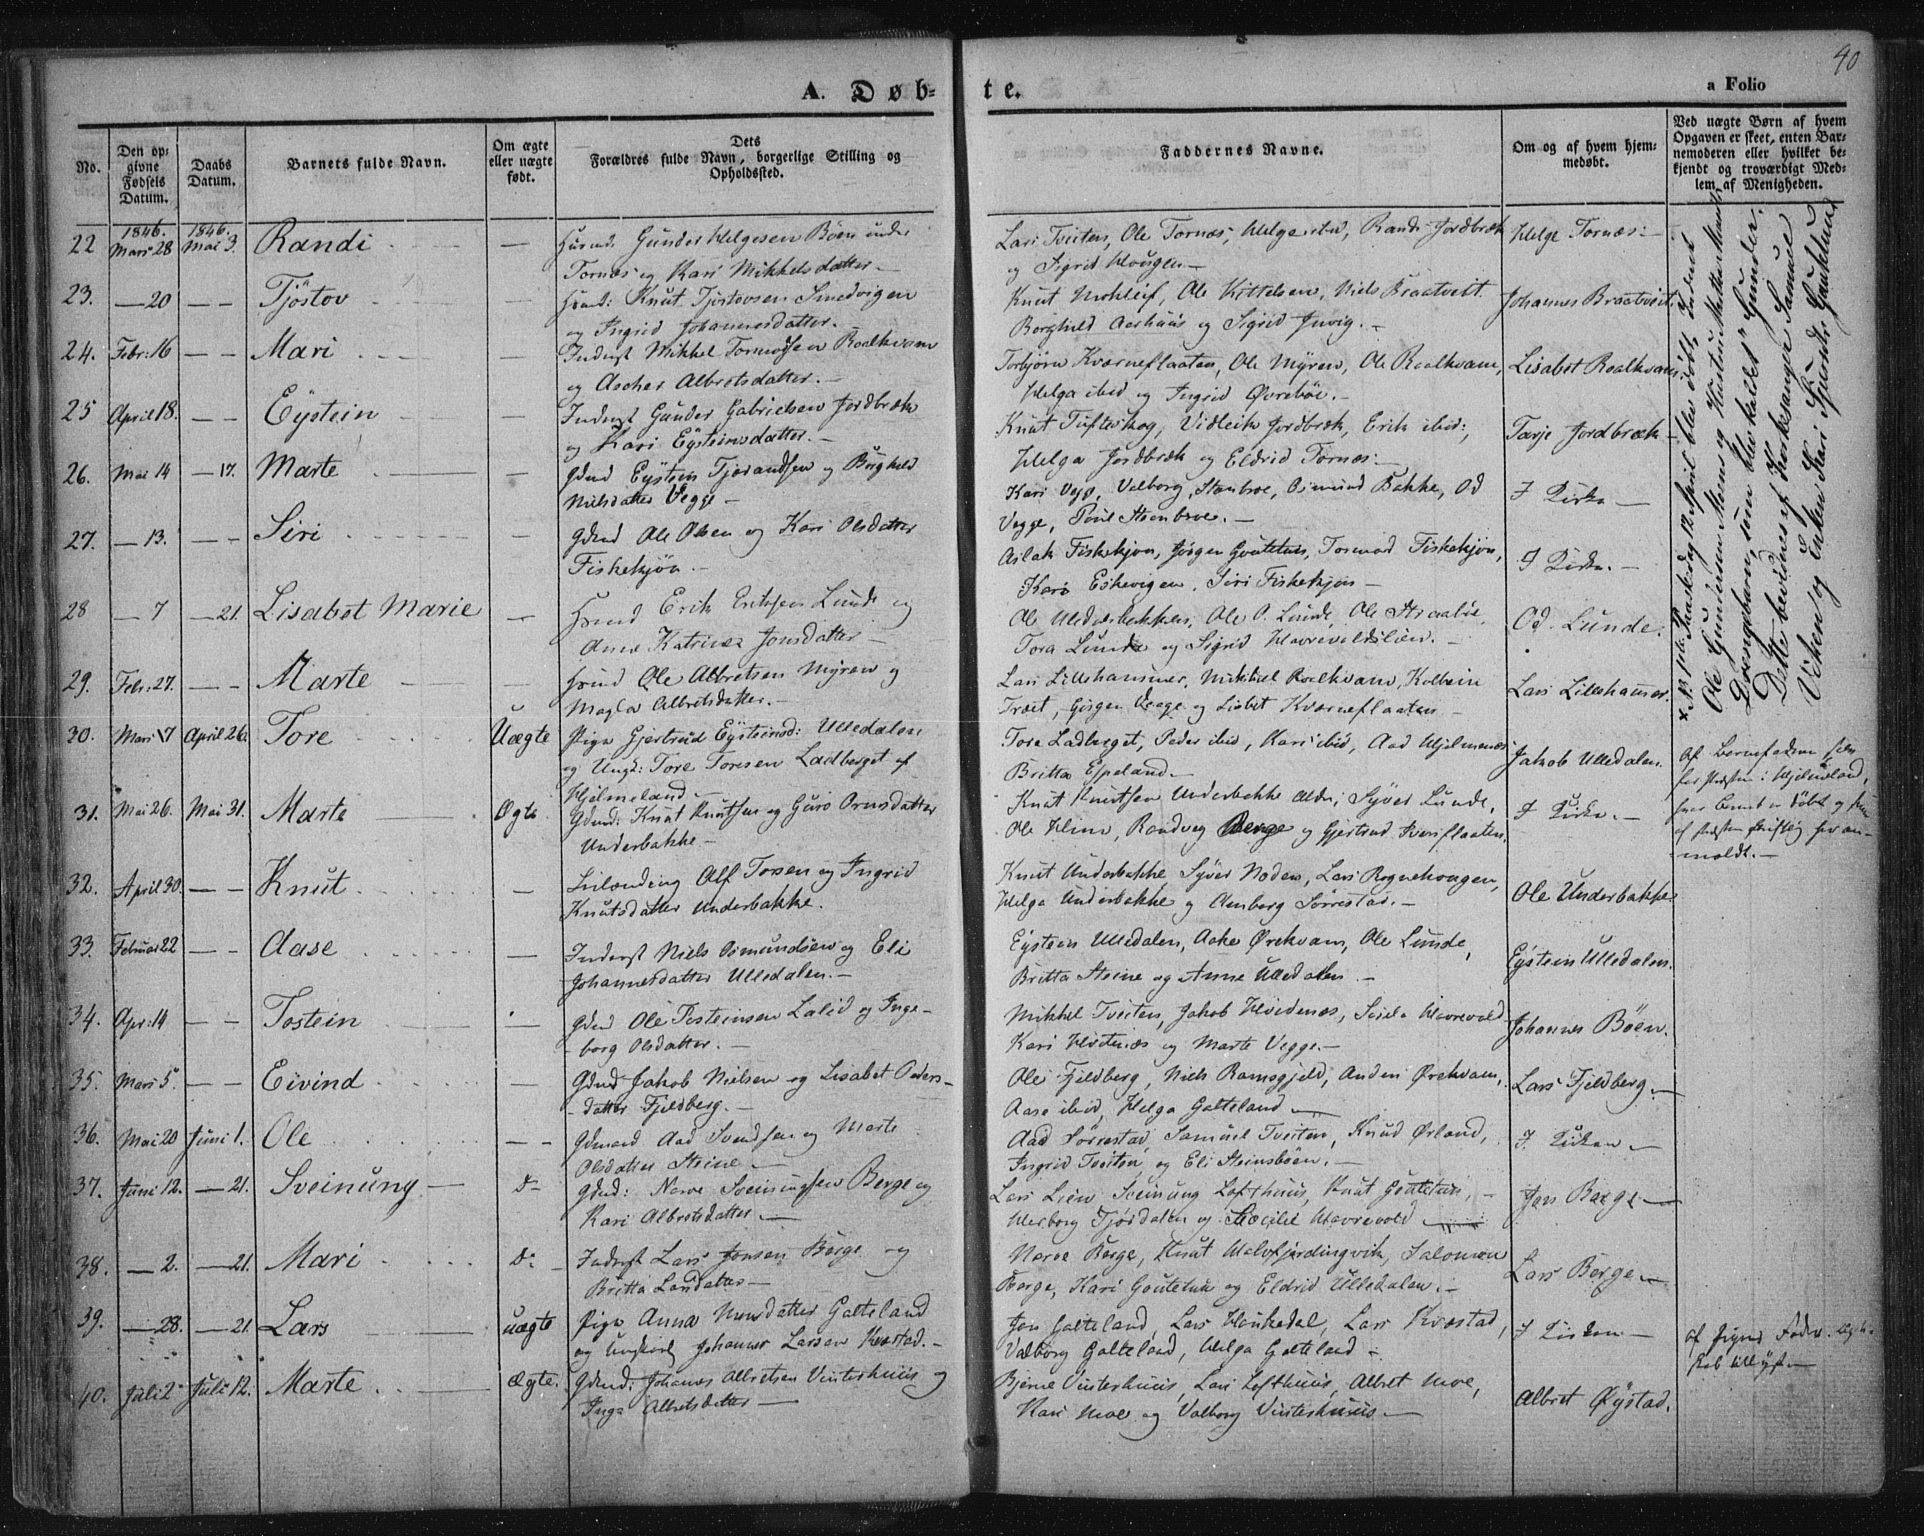 40
A. Døb-
te.
a Folio
No.
Den op-
givne
Fødsels
Datum.
Daabs
Datum.
Barnets fulde Navn.
Om ægte
eller uægte
født.
Dets
Forældres fulde Navn, borgerlige Stilling og
Opholdssted.
Faddernes Navne.
Om og af hvem hjem-
medøbt.
Ved uægte Børn af hvem
Opgaven er skeet, enten Bar-
nemoderen eller hvilket be-
kjendt og troværdigt Med-
lem af Menigheden.
1846. 1846.
22 Mars 28 Mai 3. Randi — Gunder Helgesen Böen under
Tornæs og Kari Mikkelsdatter.—
Lars Tveiten, Ole Tornæs, Helge ibid, Randi Jordbræk
og Sigrid Hougen—
Helge Tornæs.—
23. —20 — — Tjöstov — Knut Tjöstovsen Smedvigen
og Ingrid Johannesdatter.—
Knut Mohleif, Ole Kittelsen, Niels Braatveit
Borghild Aarhuus og Sigrid Juvig.—
Johannes Braatveit
24. Febr: 16 — — Mari — Inderst Mikkel Tormodsen Roalkvam
og Ascher Albretsdatter.—
Torbjörn Kværneflaaten, Ole Myren, Ole Roalkvam,
Helga ibid og Ingrid Øvreböe.—
Lisabet Roalkvam
25 April 18. — — Eÿstein — Inderst Gunder Gabrielsen Jordbræk
og Kari Eÿsteinsdatter.—
Knut Tufteskog, Vidleik Jordbræk, Erik ibid:,
Helga Jordbræk og Eldrid Tornæs:—
Tarje Jordbræk—
26. Mai 14 —17. Marte — Gdmd Eÿstein Tjerandsen og Borghild
Nielsdatter Vegge—
Kari Vegge, Valborg Stenbroe, Osmund Bakke, Od
Vegge, Poul Stenbroe.—
I Kirken—
27. —13. — — Siri — Gdmd Ole Olsen og Kari Olsdatter
Fiskekjön.—
Aslak Fiskekjön, Jörgen Goutetun, Tormod Fiskekjön,
Kari Eskevigen, Siri Fiskekjön—
I Kirken.—
28 —7 —21. Lisabet Marie — Hmd Erik Eriksen Lunde og
Ane Katrina Jonsdatter—
Ole Ulledalsbakken, Ole O. Lunde, Ole Straabö,
Tora Lunde og Sigrid Havrevoldslien.—
Od. Lunde.
29. Febr: 27. — — Marte — Hmd Ole Albretsen Myren og
Magla Albretsdatter.—
Lars Lillehammer, Mikkel Roalkvam, Kolbein
Træet, Görgen Vegge og Lisbet Kværneflaaten—
Lars Lillehamer.
30. Mars 7 April 26. Tore Uægte Pige Gjertrud Eÿsteinsd: Ulledalen
og Ungk: Tore Toresen Ladberget af
Hjelmeland.—
Tora Ladberget, Peder ibid, Kari ibid, Aad Hjelmenæs
Britta Espeland.—
Jakob Ulledalen.
af Barnefaderen selv
for Præsten i Hjelmeland,
hvor Barnet er döbt og
af Præsten skriftlig an-
meldt.—
31. Mai 26. Mai 31. Marte Ægte. Gdmd: Knut Knutsen og Guro Ormsdatter
Underbakke—
Knut Knutsen Underbakke ældr., Sÿver Lunde,
Ole Hiim, Randveg Berge og Gjertrud Kværnflaaten.
I Kirken.—
32. April 30. — — Knut — Inlænding Alf Torsen og Ingrid
Knutsdatter Underbakke.
Knut Underbakke, Sÿver Noden, Lars Rognehougen,
Helga Underbakke og Anberg Sörrestad.—
Ole Underbakke
33. Februar 22 — — Aase — Inderst Niels Osmundsen og Eli
Johannesdatter Ulledalen.—
Eÿstein Ulledalen, Aake Ørekvam, Ole Lunde,
Britta Steine og Anna Ulledalen.—
Eÿstein Ulledalen.
34. Apr: 14 — — Tostein Gdmd Ole Tosteinsen Lalid og Inge-
borg Olsdatter.—
Mikkel Tveiten, Jakob Hvidenæs, Havrevold
Kari Hvidnæs og Marte Vegge.—
Johannes Böen.
35. Mars 5. — — Eivind — Gdmd Jakob Nielsen og Lisabet Peders-
datter Fjeldberg.—
Ole Fjeldberg, Niels Ramsfjeld, Anders Ørekvam,
Aase ibid, Helga Galteland—
Lars Fjeldberg—
36. Mai 20 Juni 1. Ole — — Gdmand Aad Svendsen og Marte
Olsdatter Steine—
Aad Sörrestad, Samuel Tveiten, Knud Ørland,
Ingrid Tveiten og Eli Steinsböen.—
I Kirken—
37. Juni 12. —21. Sveinung — d— Gdmd: Narve Sveinungsen Berge og
Kari Albretsdatter—
Lars Lien, Sveinung Lofthuus, Knut Goutetun,—
Herborg Tjördalen og Sæcilie Havrevold—
Jon Berge—
38. —2. —21. Mari d:— Inderst Lars Jonsen Berge og
Britta Larsdatter—
Narve Berge, Knut Halvfjordingvik, Salomon
Berge, Kari Goutetun og Eldrid Ulledalen.—
Lars Berge—
39. —28. —21. Lars uægte Pige Anna Monsdatter Galteland
og Ungkarl Johannes Larsen Kvæstad.—
Jon Galteland, Lars Honkedal, Lars Kvæstad,
Valborg Galteland, Helga Galteland—
I Kirken—
40. Juli 2 Juli 12. Marte Ægte. Gdmd: Johanes Albretsen Vinterhuus og
Inga Albretsdatter—
Bjerne Vinterhuus, Lars Lofthuus, Albret Moe,
Kari Moe og Valborg Vinterhuus.—
Albret Øÿstad.
Paaskedag 12 April blev döbt Inderst
Ole Gundersen Steens og Hustrue
Drengebarn, som blev kaldet "Gunder".
Dette bevidnes af Kirkesanger Samuel
Viken og Enken Kari